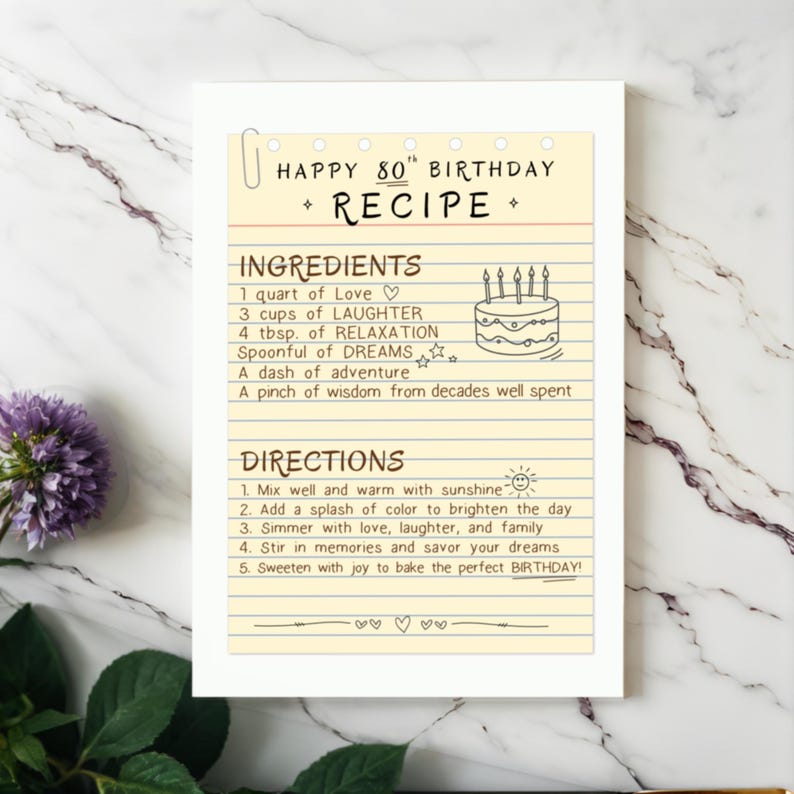 HAPPY 80th BIRTHDAY
RECIPE
INGREDIENTS
1 quart of Love
3 cups of LAUGHTER
4 tbsp. of RELAXATION
Spoonful of DREAMS
A dash of adventure
A pinch of wisdom from decades well spent
DIRECTIONS
1. Mix well and warm with sunshine
2. Add a splash of color to brighten the day
3. Simmer with love, laughter, and family
4. Stir in memories and savor your dreams
5. Sweeten with joy to bake the perfect BIRTHDAY!